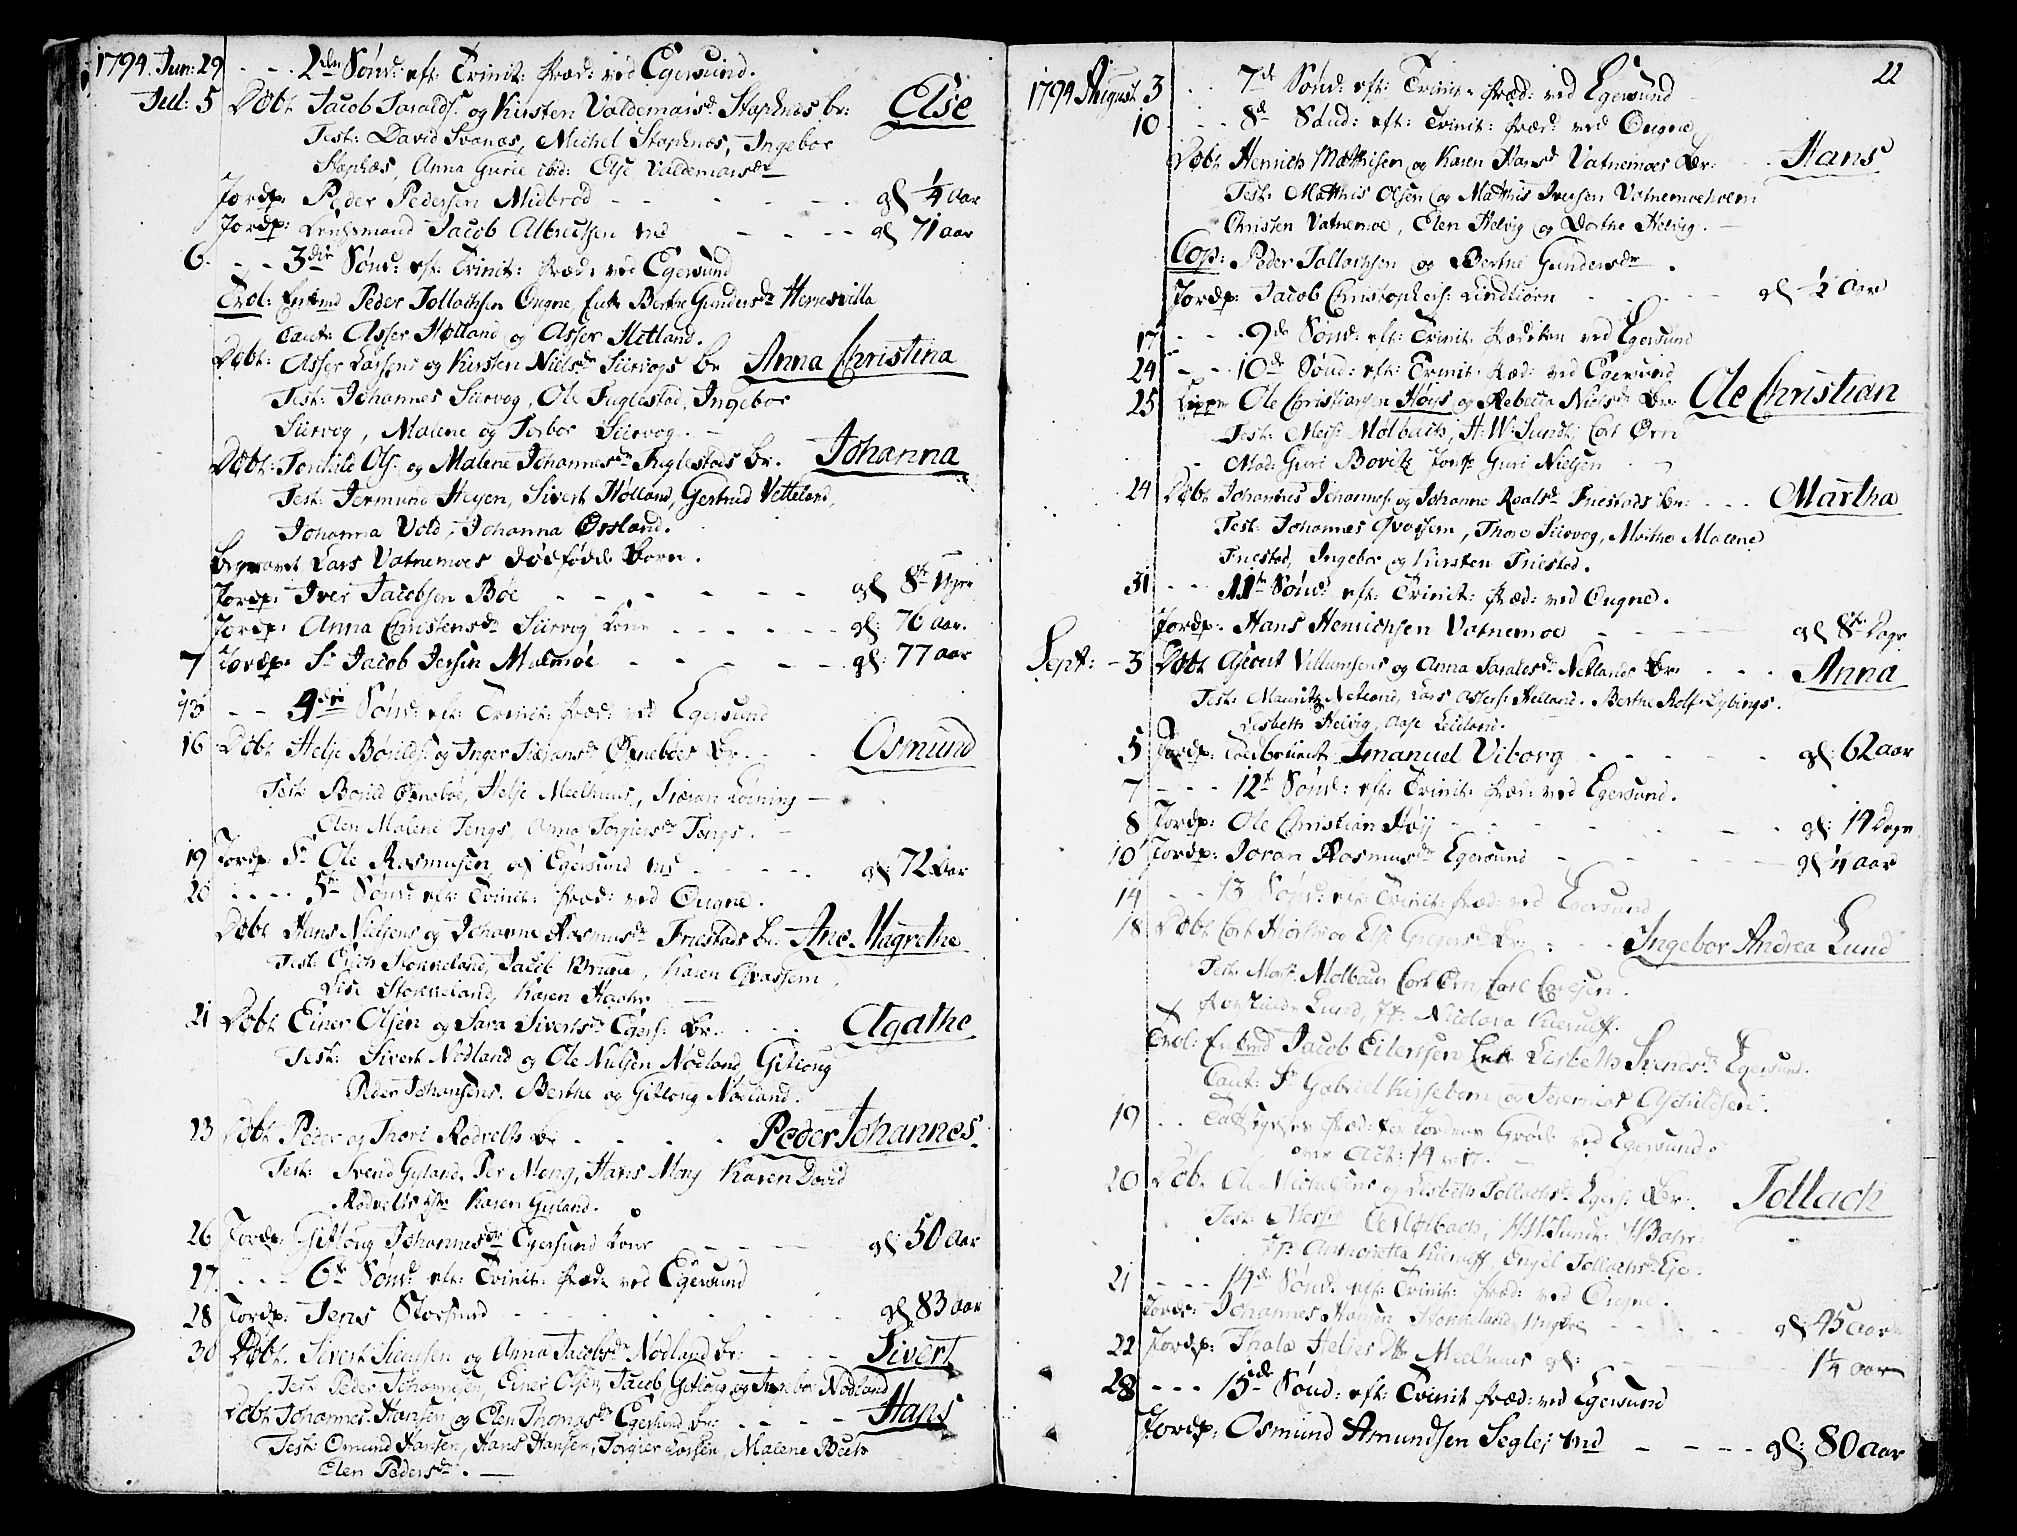 1794. Jun: 29 - - - 2den Sønd: eft: Trinit: Præd: ved Egersund.
Jul: 5 Døbt Jacob Taralds: og Kirsten Valdemarsd Stophnæs br: Else
Test: David Svanæs, Michel Stophnæs, Ingebor
Stophæs, Anna Gurie ibid: Else Valdemarsdr
Jordp: Peder Pedersen Midbrød - - - - gl 1/4 Aar
Jordp: Lensmand Jacob Albretsen - - - gl 71 aar
6. - - 3die Sønd: eft: Trinit: Præd: ved Egersund
Trol: Peder Tollachsen Ougne, Berthe Gundersdr Herresvilla
Caut: Asser Hølland og Asser Hetland.
Døbt: Asser Larsens og Kirsten Nielsdr Siirvogs br Anna Christina
Test: Johannes Siirvog, Ole Fuglestad, Ingebor
Siirvog, Malene og Torbor Siirvog. -
Døbt: Torkild Ols: og Malene Johannesdr Fuglestads br. Johanna
Test: Jermund Hegen, Sivert Hølland, Gertrud Vetteland,
Johanna Vold, Johanna Øssland.
Lars Vatnemoes dødfødde Barn.
Jordp: Iver Jacobsen Böe - - - - - - gl 8te Uger
Jordp: Anna Christensdr Siirvog Kone - - - - - gl: 76 aar.
7 Jordp: Sr Jacob Jersin Malmøe - - - - - gl: 77 aar
13 - - 4die Sønd: eft: Trinit: Præd: ved Egersund
16 Døbt Helje Børilds: og Inger Siøransdr Øgneböes Br. - - Osmund
Test: Borild Øgneböe, Helje Meelhuus, Siøran Lonning -
Elen Malene Tengs, Anna Torgiersdr Tengs. -
19 Jordp: Sr Ole Rasmusen, af Egersund - - - - - gl: 72 Aar
20 - - - - 5te Sønd: eft: Trinit: Præd: ved Ougne.
Døbt Hans Nielsens og Johanne Rasmusdr Friestads br. Ane Magrethe
Test: Erich Stokkeland, Jacob Bruse, Karen Qvassem
Lise Stokkeland, Karen Haahr -
21 Døbt Einer Olsen og Sara Sivertsdr Egers: Br. - - - Agathe
Test: Sivert Nødland og Ole Nielsen Nødland, Gitloug
Peder Johansens. Berthe og Gitloug Nødland.
23 Døbt Peder og Thori Rødvelts br - - - - Peder Johannes
Test: Svend Gyland, Per Mong, Hans Mong Karen David
Rødvelts Karen Gyland.
26 Jordp: Gitloug Johannesdr Egersund Kone - - - gl: 50 Aar
27. - - - 6te Sønd: eft: Trinit: Præd: ved Egersund
28 Jordp: Jens Storsund - - - - - - - gl 83 aar
30 Døbt. Sivert Sivertsen og Anna Jacobsdr Nødland br: - - - Sivert
Test: Peder Johannesen, Einer Olsen, Jacob, Gitloug og Ingebor Nødland
Døbt Johannes Hansen og Elen Thomasdr Egersund br: - - - - Hans
Test: Omund Hansen, Hans Hansen, Torgier Larsen, Malene Bech
Elen Pedersdr. -
22
1794 August 3 - - 7de Sønd: eft: Trinit: Præd: ved Egersund
10 - - - 8de Sønd: eft: Trinit: Præd: ved Ougne,
Døbt Henrich Mathisen og Karen Hansd Vatnemoes Br: - - Hans
Test: Matthis Olsen og Matthis Iversen Vatnemoeholem
Christen Vatnemoe, Elen Helvig og Dorthe Helvig. -
Cop: Peder Tollachsen og Berthe Gundersdr.
Jordp: Jacob Christophers: Lindtiørn - - - - - gl 1/2 Aar
17 - - - 9de Sønd: eft: Trinit: Prædiken ved Egersund
24 - - - 10de Sønd: eft: Trinit: Præd: ved Egersund
25 Ole Christiansen Høys og Rebecka Nielsdr Br: Ole Christian
Test: Molbach, H: W: Sundt, Cort Ørn
Mad: Guri Bovitz Jomfr Guri Nielsen -
24 Døbt Johannes Johannes: og Johanne Roalsdr Friestads Br: - - - Martha
Test: Johannes Qvassem, Thore Siirvog, Marthe Malene
Friestad, Ingebor og Kirsten Friestad.
31 - - - 11te Sønd: eft: Trinit: Præd: ved Ougne.
Jordp: Hans Henrichsen Vatnemoe - - - - - gl 8te Dage
Sept: - 3 Døbt Villumsens og Anna Taraldsdr Netlands Br: - - - Anna
Test: Mauritz Netland, Lars Assers: Helland. Berthe Rolfs: Lybings.
Lisbeth Helvig, Aase Leidland.
5 Jordp: Imanuel Viborg - - - - - - gl: 62 aar
7 - - - 12te Sønd: eft: Trinit: Præd: ved Egersund.
8 Jordp: Ole Christian Høij - - - - - - - gl: 14 Dage
10 Jordp: Joran Rasmusdr Egersund - - - - - gl 1/4 aar
14 - - - 13 Sønd: eft: Trinit: Præd: ved Egersund
18 Døbt Cort Hiorth og Else Gregersd Br: - - - Ingebor Andrea Lund
Test: Molbach Cort Ørn, Carl Carlsen.
Lund, Jfr Nicolava Kierulff.
Trol: Jacob Eilertsen Lisbeth Svendsdr Egersund.
Caut: Sr Gabriel Kirsebom og Jeremias Eschildsen.
19 - - Præd: for Jordens Grøde ved Egersund.
over Act: 14 v: 17. -
20 Døbt Ole Michelsens og Lisbeth Tollachsdr Egers: Br: Tollach
Test: Molbach, H W. Sundt,
Jfr Anthonetta Kierulff, Engel Tollachsd Eje.
21 - - - 14de Sønd: eft: Trinit: Præd: ved Ougne.
Jordp: Johannes Hansen Stokkeland - - - - - gl 45 aar
22 Jordp: Thala Heljes Dtr Meelhuus gl: - - - - - 1/4 aar
28 - - - 15de Sønd: eft: Trinit Præd: ved Egersund
Jordp: Osmund Amundsen Seglej - - - - gl: 80 aar